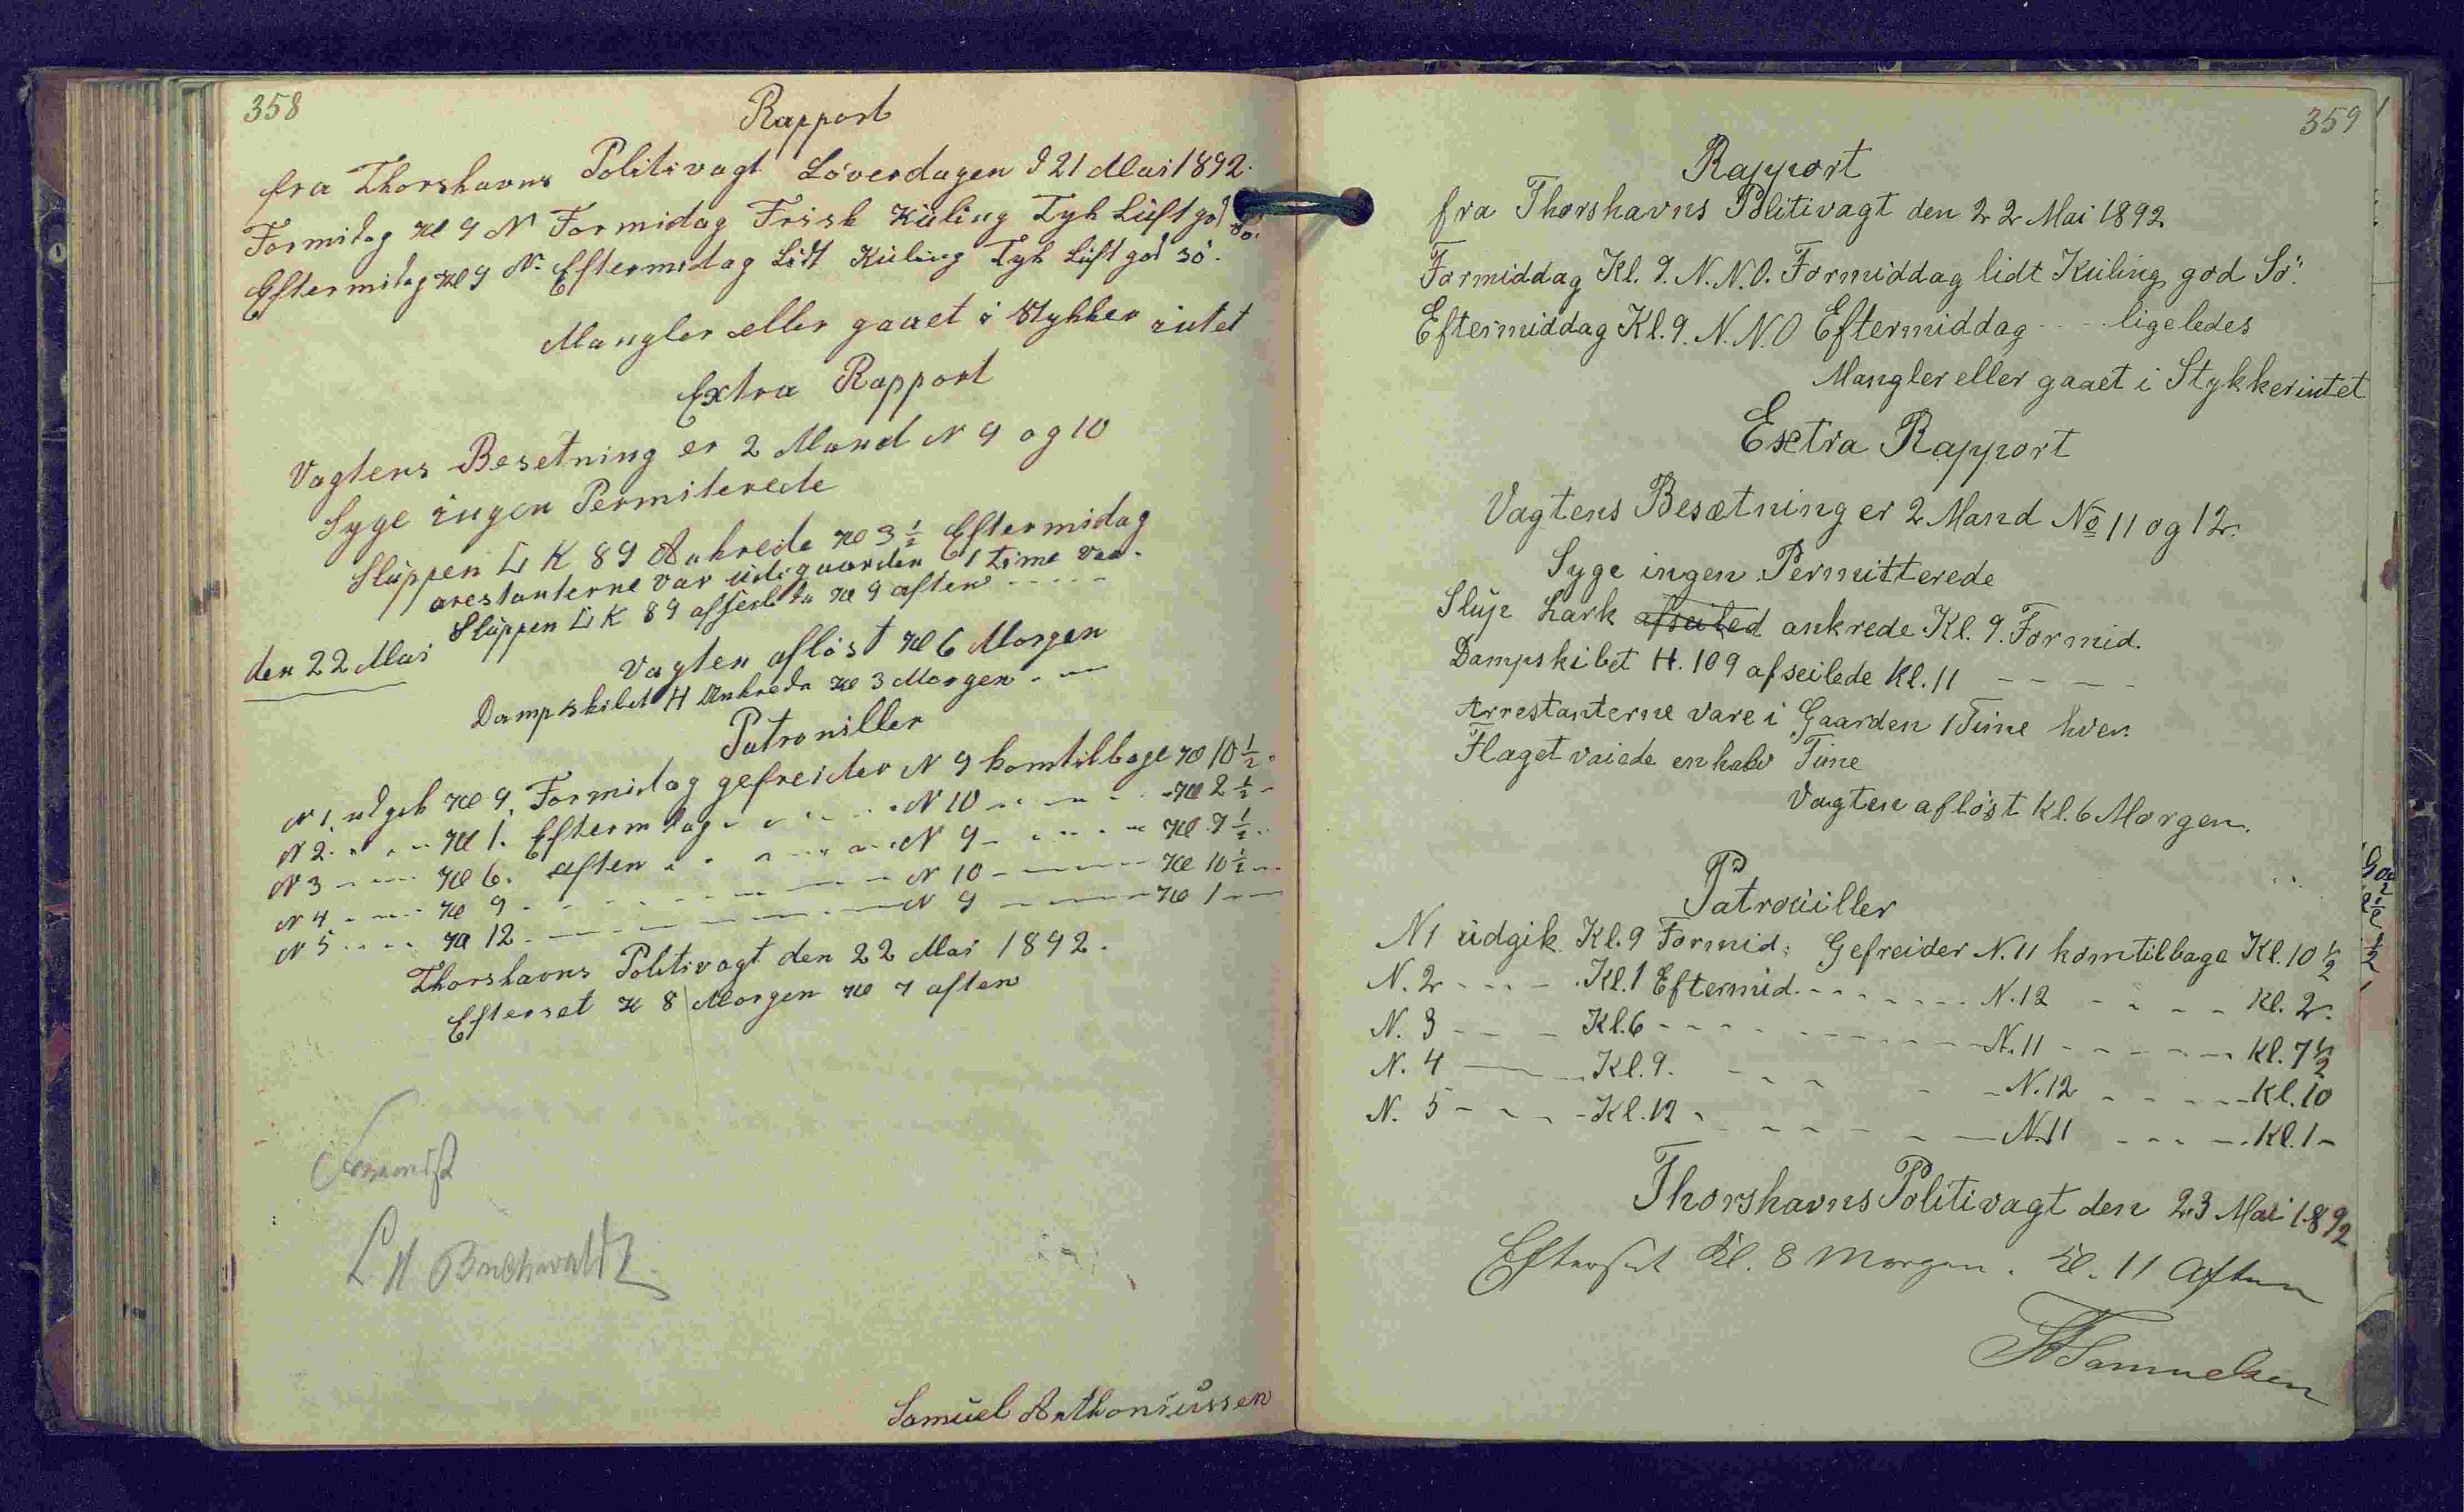 358
Rapport
fra Thorshavns Politivagt Löverdagen d 21 Mai 1892.
Formidag Kl 9 N Formidag Frisk Küling Tyk Lüft god Sö.
Eftermidag Kl 9 N. Eftermidag Lidt Küling Tyk Lüft god sö.
Mangler eller gaaet i Stykker intet
Extra Rapport
Vagtens Besetning er 2 Mand N 9 og 10
Syge ingen Permiterede
Slüppen LK 89 Ankrede Kl 3 1/2 Eftermidag
arestanterne var üdi gaarden 1 time ver.
Slüppen LK 89 afseilede Kl 9 aften - - - - -
den 22 Mai
Vagten aflöst Kl 6 Morgen
Dampskibet H Ankrede Kl 3 Morgen - -
Patroniller
N 1. udgik Kl 9. Formidag gefreider N 9 komtilbage Kl 10 1/2 -
N 2. - - - Kl 1. Eftermidag - - - - N 10 - - - - Kl 2 1/2 -
N 3 - - - Kl 6. aften - - - - - N 9 - - - - Kl 7 1/2 -
N 4 - - - Kl 9 - - - - - - N 10 - - - - Kl 10 1/2 -
N 5 - - - Kl 12 - - - - - - N 9 - - - - Kl 1 - -
Thorshavns Politivagt den 22 Mai 1892.
Efterset Kl 8 Morgen Kl 7 aften
L H Buchwaldt
Samüel Anthoniüssen
359
Rapport
fra Thorshavns Politivagt den 22 Mai 1892
Formiddag Kl. 9. N.N.O. Formiddag lidt Küling god Sö.
Eftermiddag Kl. 9. N.N.O Eftermiddag - - - - ligeledes
Mangler eller gaaet i Stykker intet
Extra Rapport
Vagtens Besætning er 2 Mand No 11 og 12.
Syge ingen Permitterede
Slüp Lark afseiled ankrede Kl. 9. Formid.
Dampskibet H. 109 afseilede Kl. 11 - - - -
Arrestanterne vare i Gaarden 1 Time hver.
Flaget vaiede en halv Time
Vagten aflöst Kl. 6 Morgen.
Patroüiller
N1 üdgik Kl. 9 Formid: Gefreider N. 11 komtilbage Kl. 10 1/2
N. 2 - - - - Kl. 1 Eftermid. - - - - - - N. 12 - - - - Kl. 2.
N. 3 - - - Kl. 6 - - - - - - - - N. 11 - - - - - Kl. 7 1/2
N. 4 - - - Kl. 9. - - - - - N. 12 - - - - - Kl. 10
N. 5 - - - - Kl. 12 - - - - - - - N. 11 - - - - Kl. 1 -
Thorshavns Politivagt den 23 Mai 1892
Efterset Kl. 8 Morgen. Kl. 11 Aften
Samuelsen